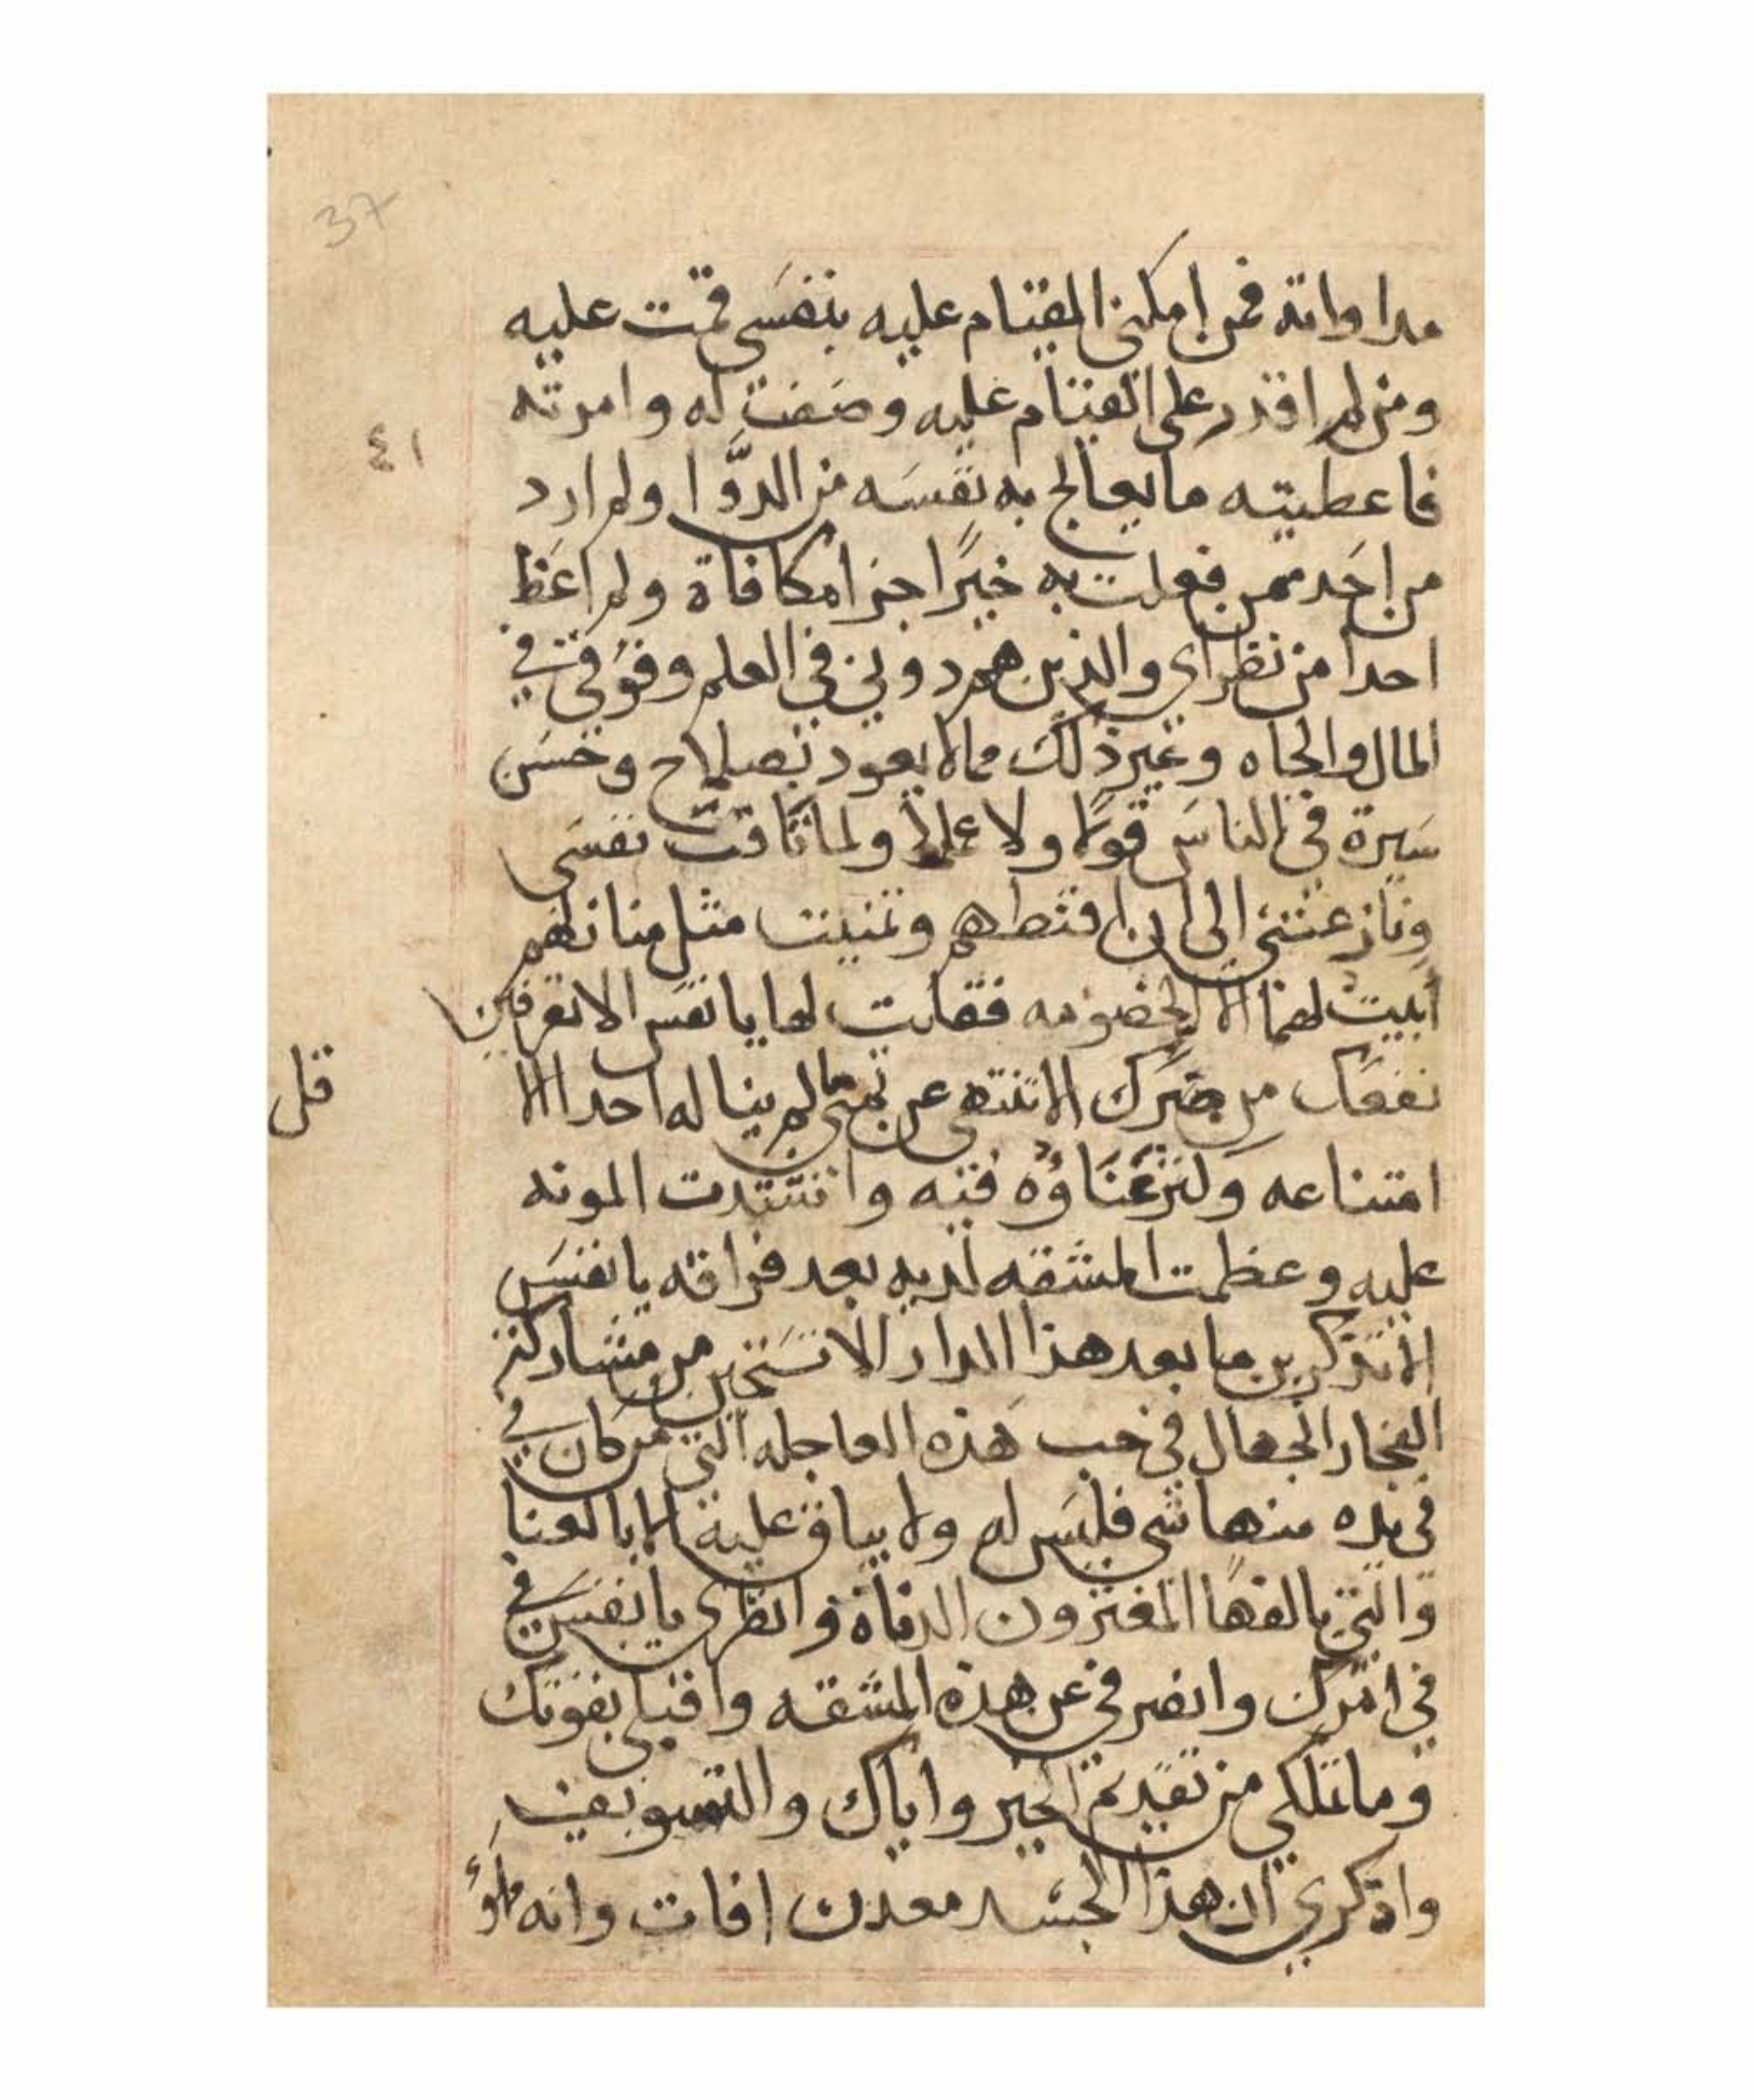 37
مداواته فمن امكنني القيام عليه بنفسي قمت عليه
ومن لم اقدر على القيام عليه وصفت له وامرته
٤١
فاعطيته ما يعالج به نفسه من الدوا ولم ارد
من احد ممن فعلت به خيرا جزا مكافاة ولم اغظ
احدا من نظراي والذين هم دوني في العلم وفوقي في
المال والجاه وغير ذلك مما لا يعود بصلاح وحسن
سيرة في الناس قولا ولا عملا ولما تاقت نفسي
ونازعتني الى ان وتمنيت مثل منازلهم
ابيت لهما الا الخصومه فقلت لها يا نفس الا تعرفين
نفعك من ضرك الا تنتهي عن تمني لم يناله احد الا
قل
امتناعه وكثر عناؤه فيه واشتدت المونه
عليه وعظمت المشقه لديه بعد فراقه يا نفس
الا تذكرين ما بعد هذا الدار الا تستحين من مشاركة
الفجار الجهال في حب هذه العاجله التي من كان في
في يده منها شي فليس له ولا بباق عليه الا بالعنا
والتي يالفها المغترون وانظري يا نفس في
في امرك وانصرفي عن هذه المشقه واقبلي بقوتك
وما تملكي من تقديم الخير واياك والتسويف
واذكري ان هذا الجسد معدن افات وانه مملؤ